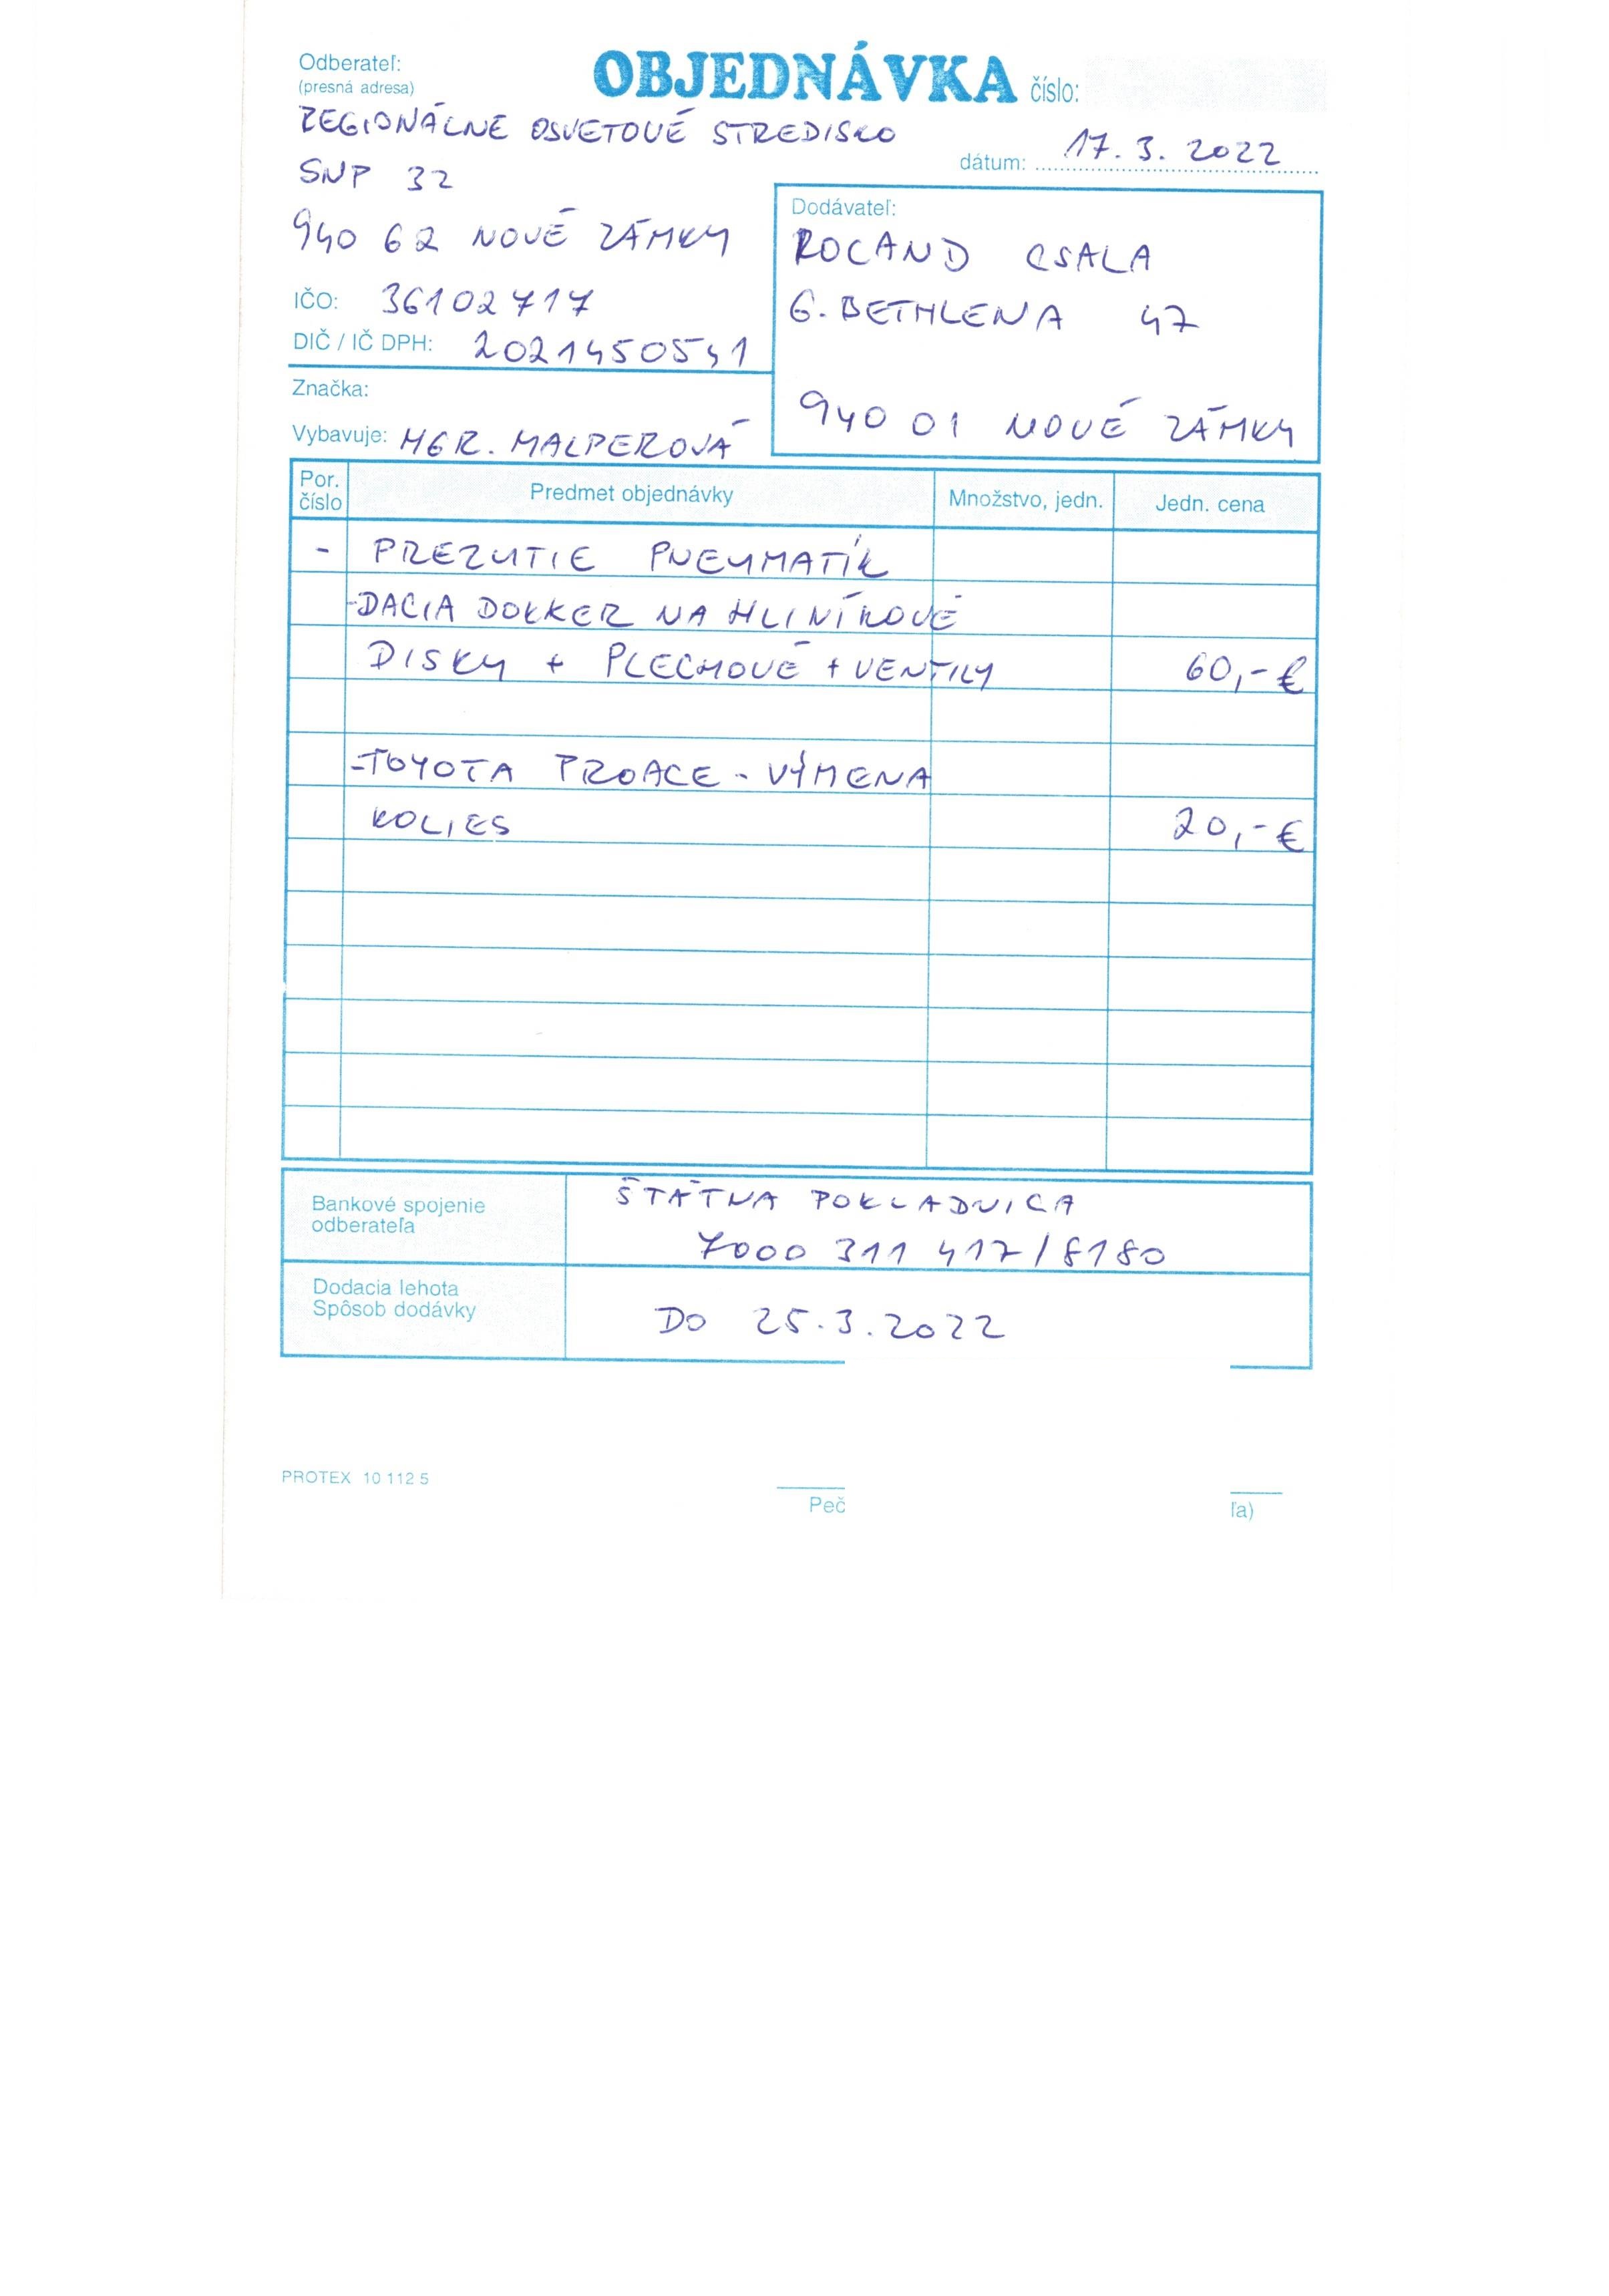 Odberateľ:
(presná adresa)
OBJEDNÁVKA číslo:
REGIONÁLNE OSVETOVÉ STREDISKO
dátum: 17. 3. 2022
SNP 32
940 62 NOVÉ ZÁMKY
IČO: 36102717
DIČ / IČ DPH: 2021450541
Značka:
Vybavuje: MGR. MALPEROVÁ
Dodávateľ:
ROLAND CSALA
G. BETHLENA 47
940 01 NOVÉ ZÁMKY
Por. číslo Predmet objednávky Množstvo, jedn. Jedn. cena
- PREZUTIE PNEUMATÍK
-DACIA DOKKER NA HLINÍKOVÉ
DISKY + PLECHOVÉ + VENTILY 60,-€
-TOYOTA PROACE - VÝMENA
KOLIES 20,-€
Bankové spojenie
odberateľa
ŠTÁTNA POKLADNICA
7000 311 417/8180
Dodacia lehota
Spôsob dodávky
DO 25.3.2022
PROTEX 10 112 5
Peč
ľa)